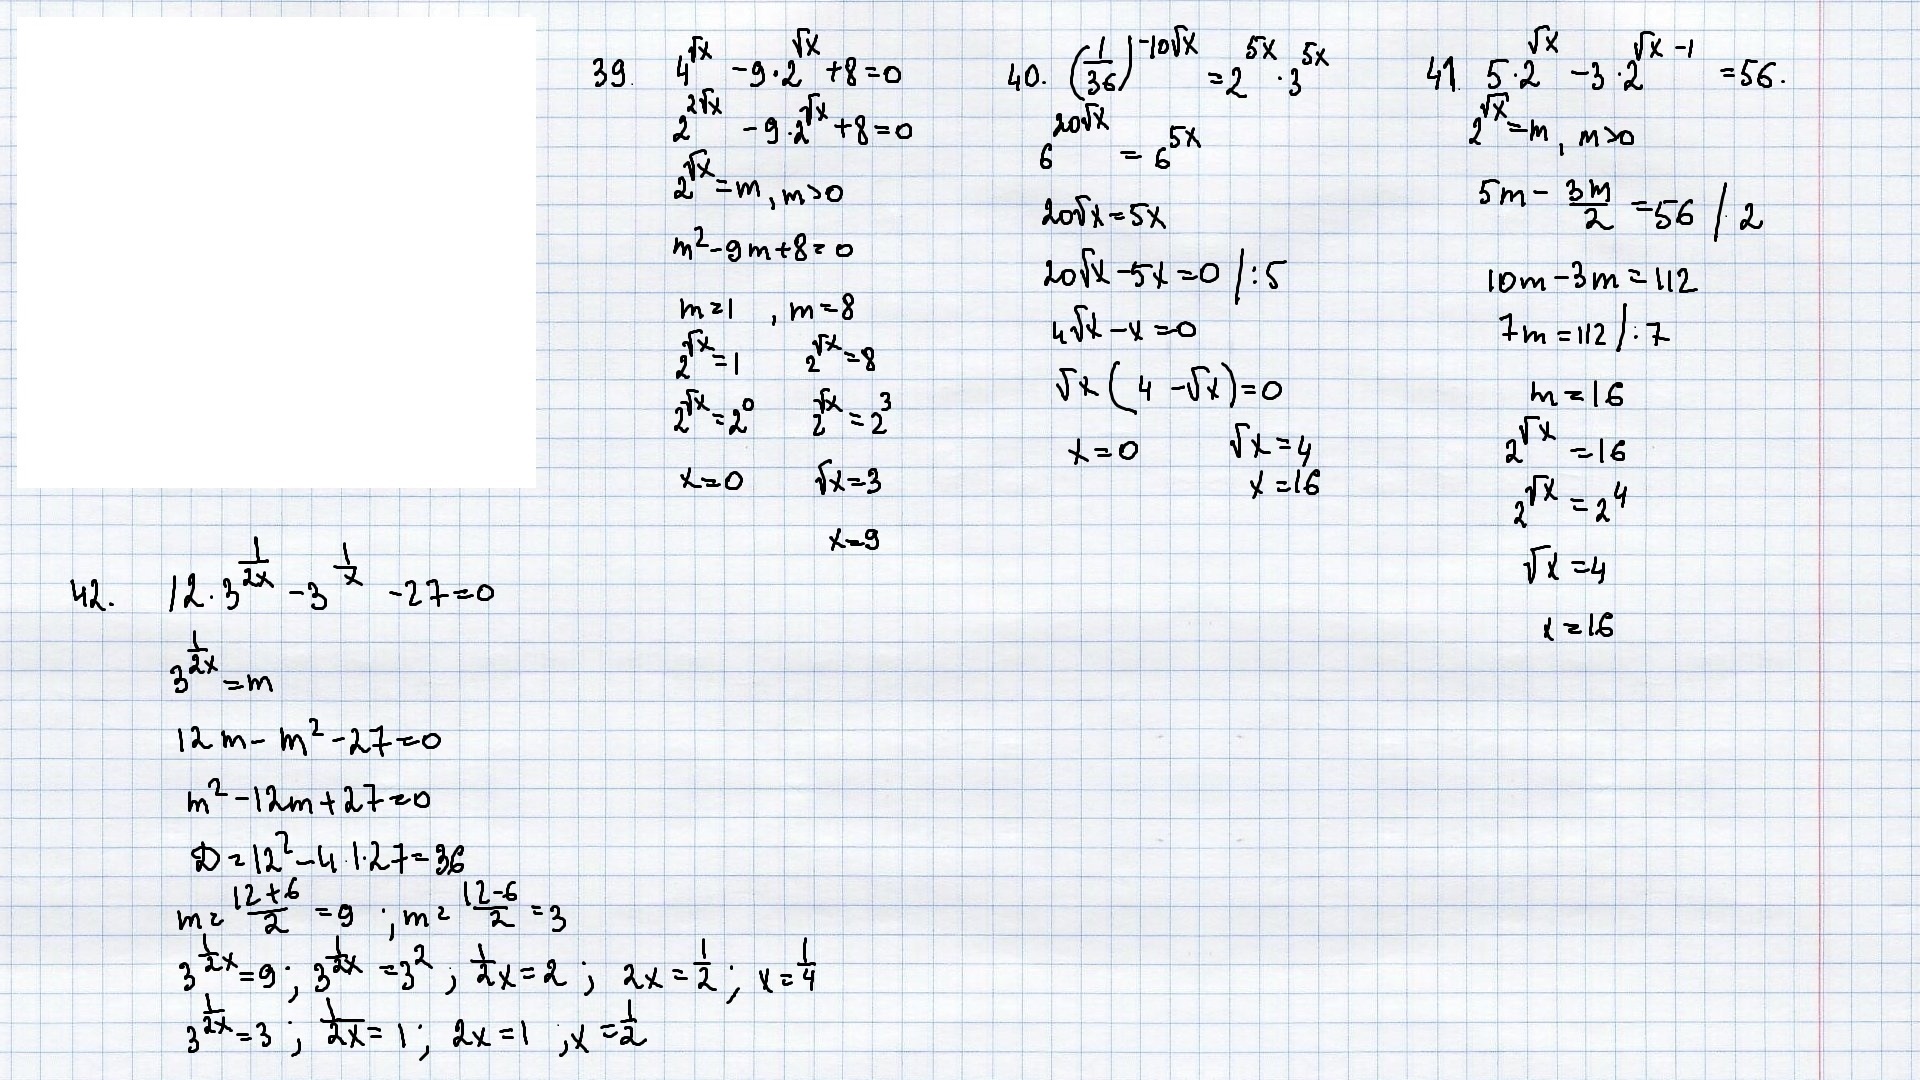 39. 4^√x - 9·2^√x + 8 = 0
2^2√x - 9·2^√x + 8 = 0
2^√x = m, m>0
m² - 9m + 8 = 0
m = 1 , m = 8
2^√x = 1 2^√x = 8
2^√x = 2^0 2^√x = 2^3
x = 0 √x = 3
x = 9
40. (1/36)^-10√x = 2^5x · 3^5x
6^20√x = 6^5x
20√x = 5x
20√x - 5x = 0 /:5
4√x - x = 0
√x (4 - √x) = 0
x = 0 √x = 4
x = 16
41. 5·2^√x - 3·2^√x-1 = 56.
2^√x = m, m>0
5m - 3m/2 = 56 / 2
10m - 3m = 112
7m = 112 /:7
m = 16
2^√x = 16
2^√x = 2^4
√x = 4
x = 16
42. 12·3^1/2x - 3^1/x - 27 = 0
3^1/2x = m
12m - m² - 27 = 0
m² - 12m + 27 = 0
D = 12² - 4·1·27 = 36
m = 12+6/2 = 9 ; m = 12-6/2 = 3
3^1/2x = 9 ; 3^1/2x = 3² ; 1/2x = 2 ; 2x = 1/2 ; x = 1/4
3^1/2x = 3 ; 1/2x = 1 ; 2x = 1 ; x = 1/2